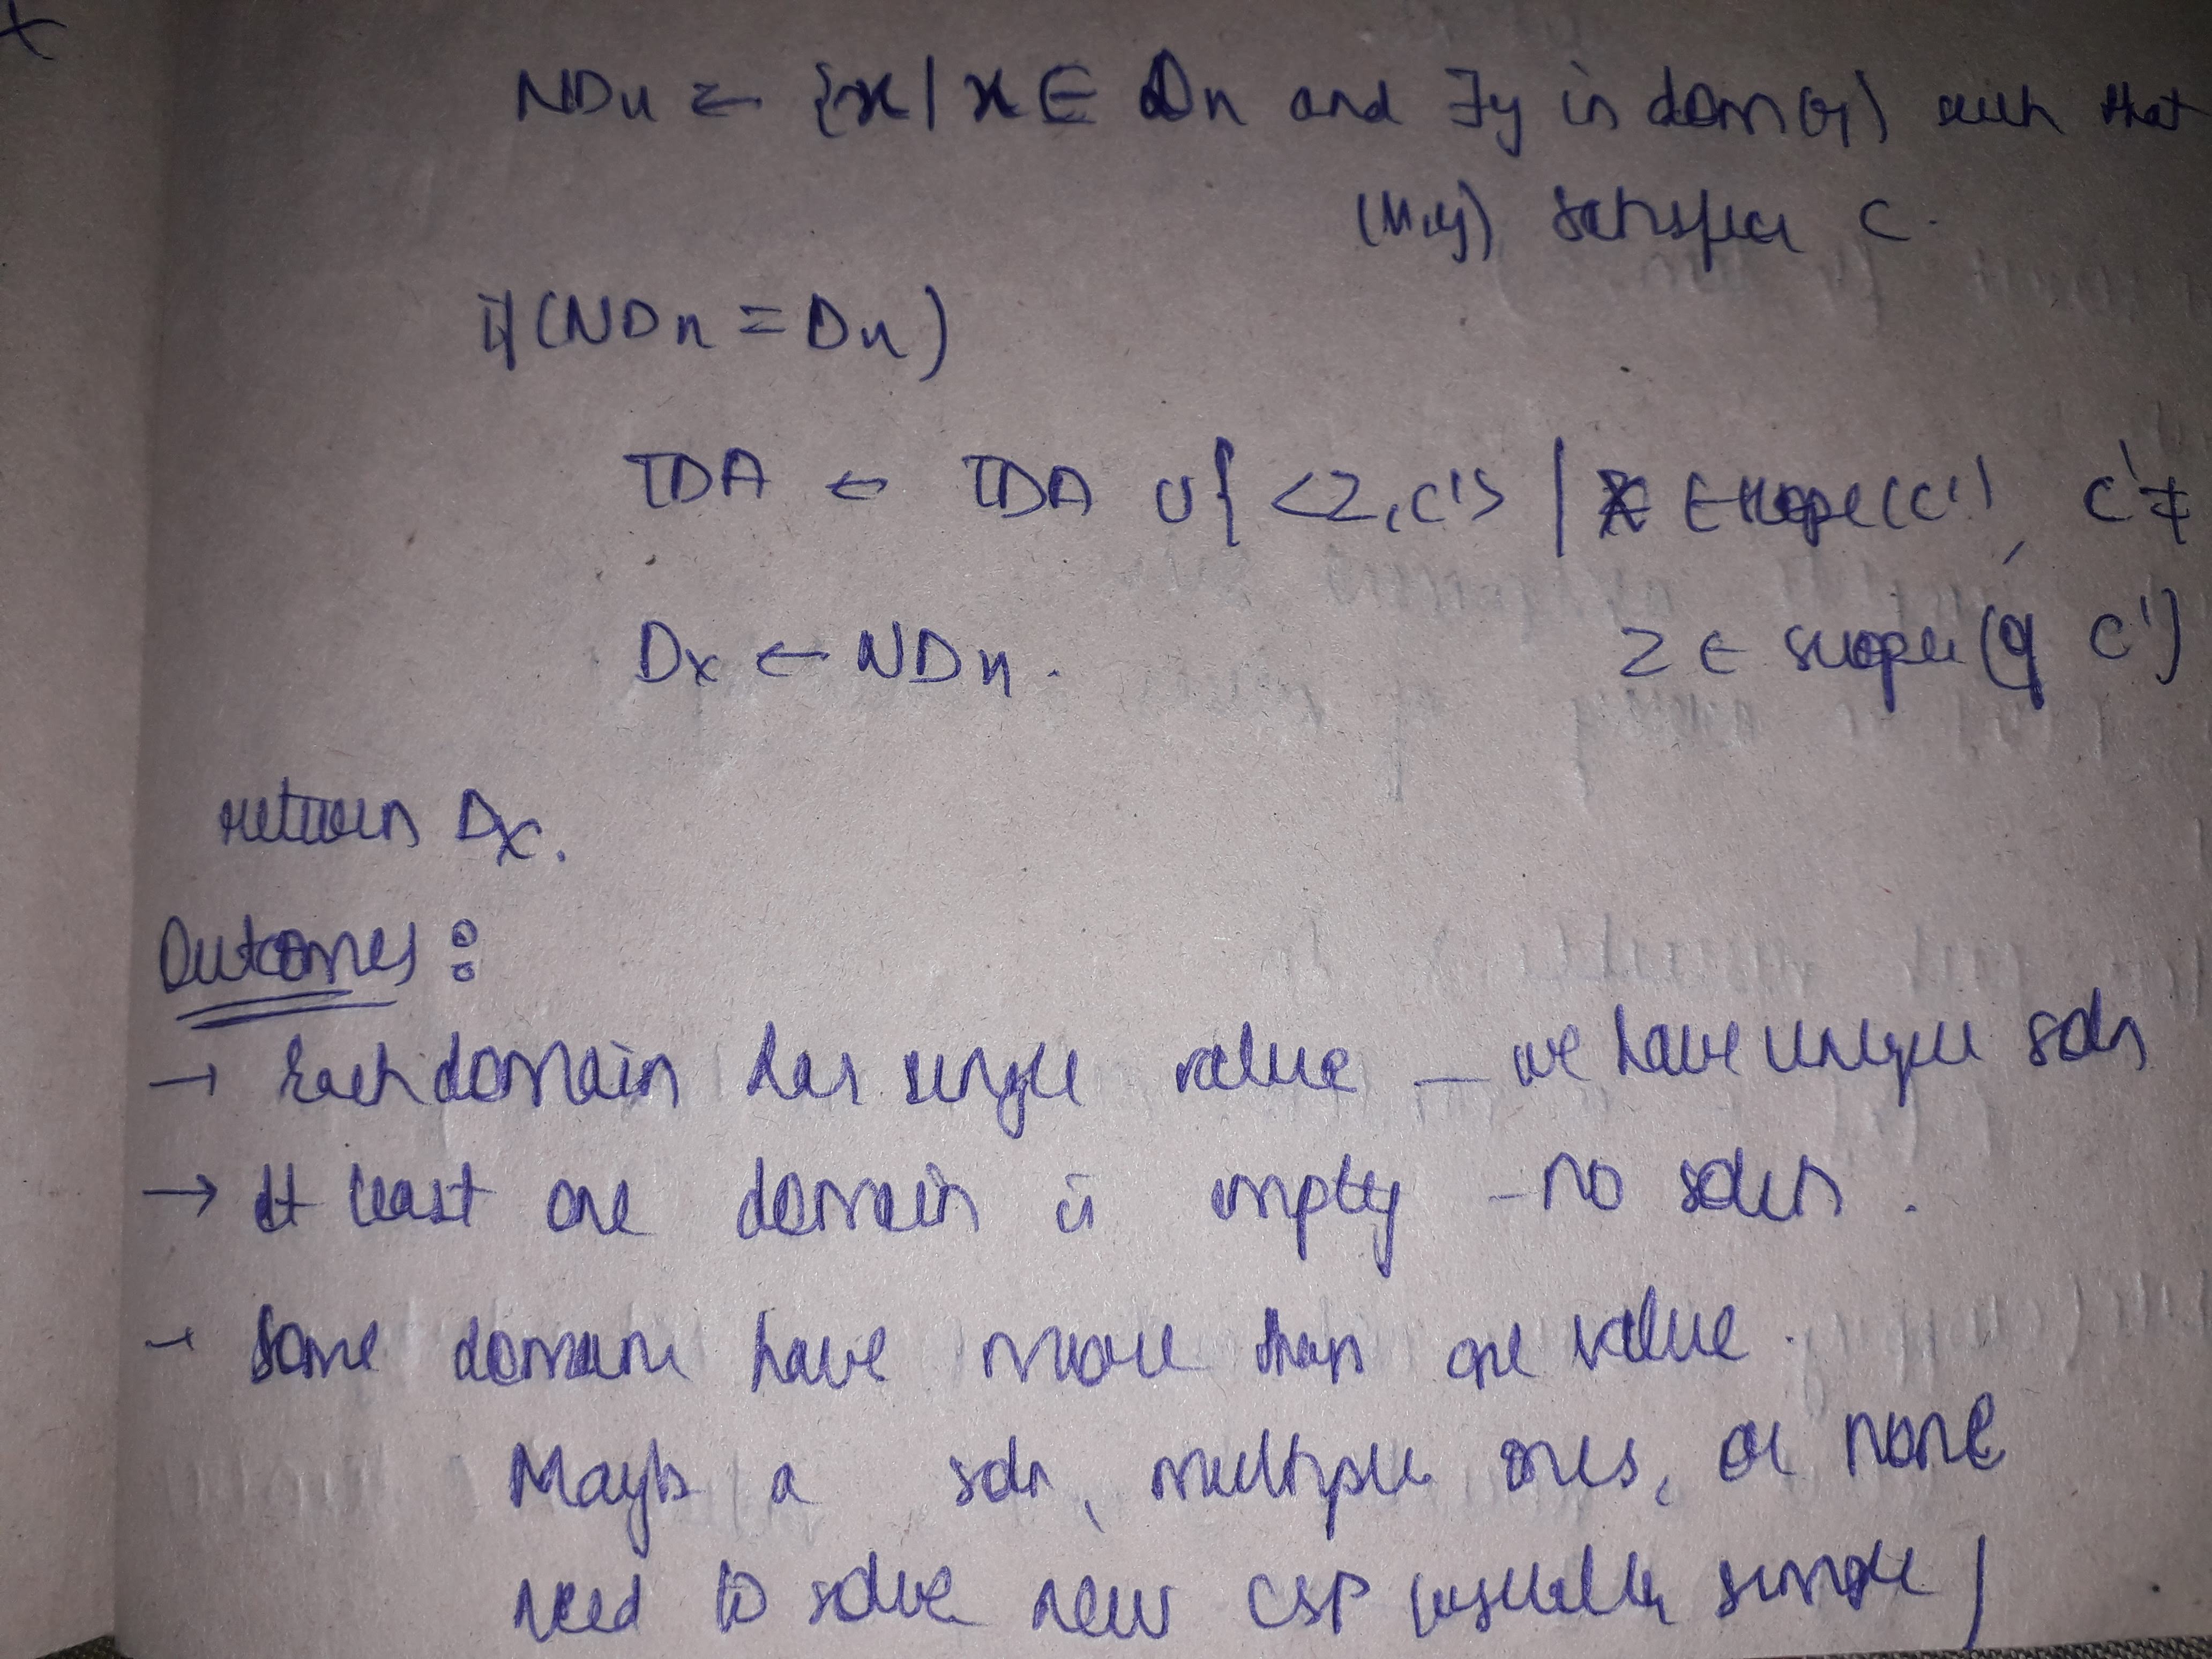 x
NDx ← {x | x ∈ Dx and ∃y in dom(y) such that
(x,y) satisfies C.
if (NDx = Dx)
TDA ← TDA ∪ { <Z, C'> | X ∈ scope(C'), C' ≠
Dx ← NDx. Z ∈ scope (of C')
return Dx.
Outcomes :
→ Each domain has single value – we have unique soln
→ At least one domain is empty – no soln.
→ Some domain have more than one value.
Maybe a soln, multiple ones, or none
need to solve new CSP (usually simple)